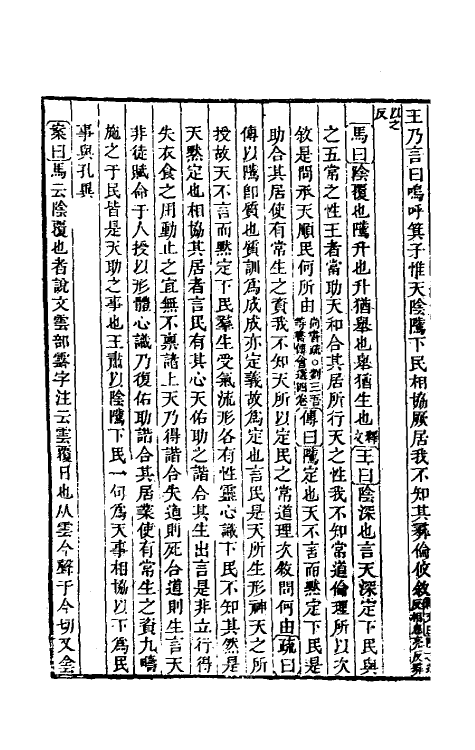 王乃言曰嗚呼箕子惟天陰隲下民相協厥居我不知其彝倫攸敘
以之反
馬曰陰覆也隲升也升猶舉也舉猶生也釋文王曰陰深也言天深定下民與
之五常之性王者當助天和合其居所行天之性我不知常道倫理所以次
敘是問承天順民何所由尚書疏傳曰隲定也天不言而黙定下民是
助合其居使有常生之資我不知天所以定民之常道理次敘問何由疏曰
傳以隲即質也質訓為成成亦定義故為定也言民是天所生形神天之所
授故天不言而黙定下民羣生受氣流形各有性靈心識下民不知其然是
天黙定也相協其居者言民有其心天佑助之諧合其生出言是非立行得
失衣食之用動止之宜無不稟諸上天乃得諧合失道則死合道則生言天
非徒賦命于人授以形體心識乃復佑助諧合其居業使有常生之資九疇
施之于民皆是天助之事也王肅以陰隲下民一句為天事相協以下為民
事與孔異
案曰馬云陰覆也者說文雲部霒字注云雲覆日也从雲今聲于今切又全